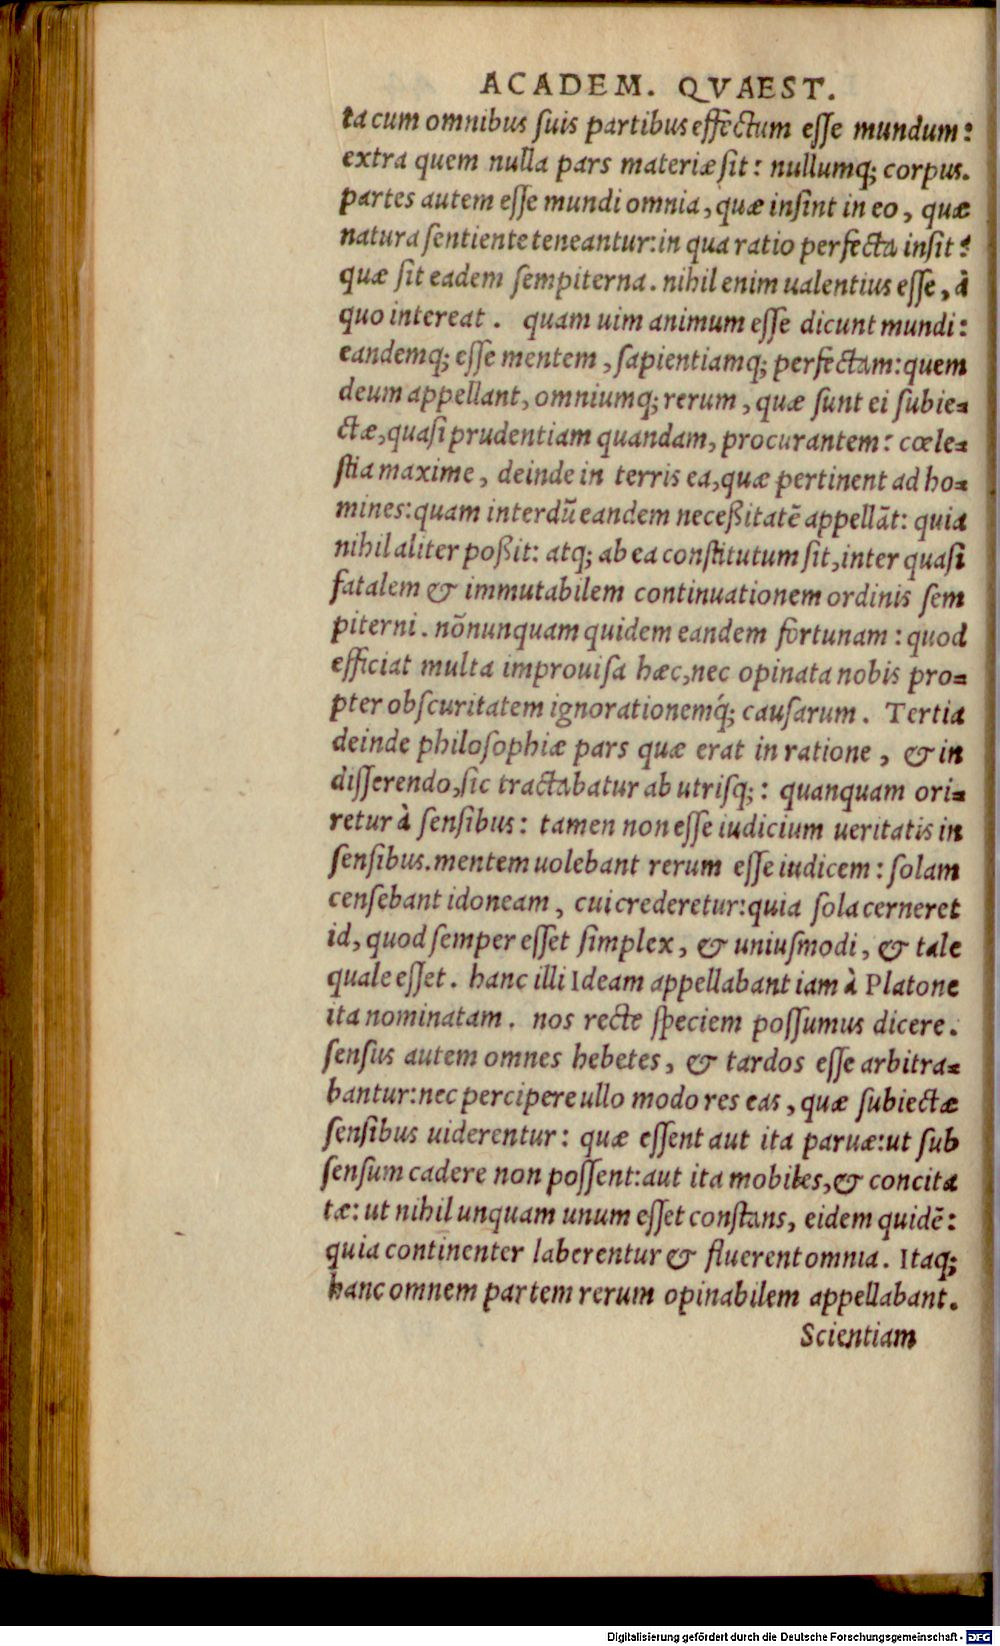 ACADEM. QVAEST.
ta cum omnibus suis partibus effectum esse mundum:
extra quem nulla pars materiæ sit: nullumq; corpus.
partes autem esse mundi omnia, quæ insint in eo, quæ
natura sentiente teneantur: in qua ratio perfecta insit:
quæ sit eadem sempiterna. nihil enim ualentius esse, à
quo intereat. quam uim animum esse dicunt mundi:
eandemq; esse mentem, sapientiamq; perfectam: quem
deum appellant, omniumq; rerum, quæ sunt ei subie-
ctæ, quasi prudentiam quandam, procurantem: cœle-
stia maxime, deinde in terris ea, quæ pertinent ad ho-
mines: quam interdũ eandem neceßitatẽ appellãt: quia
nihil aliter poßit: atq; ab ea constitutum sit, inter quasi
fatalem & immutabilem continuationem ordinis sem
piterni. nõnunquam quidem eandem fortunam: quod
efficiat multa improuisa hæc, nec opinata nobis pro-
pter obscuritatem ignorationemq́; causarum. Tertia
deinde philosophiæ pars quæ erat in ratione, & in
disserendo, sic tractabatur ab utrisq;: quanquam ori-
retur à sensibus: tamen non esse iudicium ueritatis in
sensibus. mentem uolebant rerum esse iudicem: solam
censebant idoneam, cui crederetur: quia sola cerneret
id, quod semper esset simplex, & uniusmodi, & tale
quale esset. hanc illi Ideam appellabant iam à Platone
ita nominatam. nos recte speciem possumus dicere.
sensus autem omnes hebetes, & tardos esse arbitra-
bantur: nec percipere ullo modo res eas, quæ subiectæ
sensibus uiderentur: quæ essent aut ita paruæ: ut sub
sensum cadere non possent: aut ita mobiles, & concita
tæ: ut nihil unquam unum esset constans, eidem quidẽ:
quia continenter laberentur & fluerent omnia. Itaq;
hanc omnem partem rerum opinabilem appellabant.
Scientiam
Digitalisierung gefördert durch die Deutsche Forschungsgemeinschaft - DFG